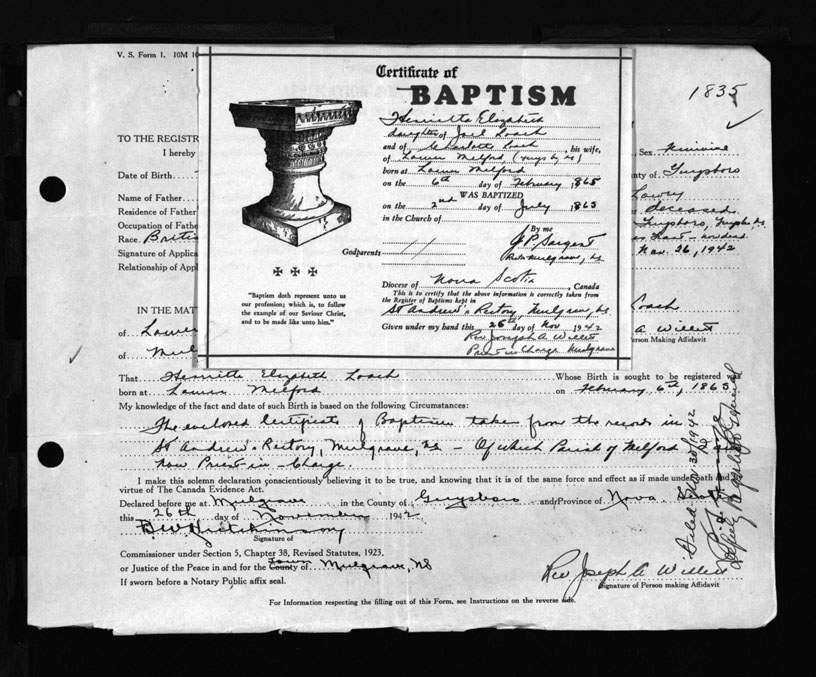 V. S. Form 1. 10M
1835
Certificate of
BAPTISM
Henrietta Elizabeth
daughter of Joel Loach
and of Charlotte Loach, his wife,
of Lower Melford
born at Lower Melford
on the 6th day of February 1865
WAS BAPTIZED
on the 2nd day of July 1865
in the Church of
By me
J P Sargent
Godparents
Diocese of Nova Scotia, Canada
This is to certify that the above information is correctly taken
from the Register of Baptisms kept in
St Andrew's Rectory, Mulgrave, NS
Given under my hand this 25th day of Nov 1942
Rev Joseph A Willett
Priest in Charge Mulgrave
"Baptism doth represent unto us
our profession; which is, to follow
the example of our Saviour Christ,
and to be made like unto him."
TO THE REGISTR
I hereby
Sex
Date of Birth
nty of Guysboro
Name of Father
Residence of Father
deceased
Occupation of Father
Guysboro
Race. Britis
Signature of Applica
Nov. 26, 1942
Relationship of Appl
IN THE MAT
Loach
of Lower
A Willett
erson Making Affidavit
of Mul
That Henrietta Elizabeth Loach Whose Birth is sought to be registered was
born at Lower Melford on February 6th, 1865
My knowledge of the fact and date of such Birth is based on the following Circumstances:
The enclosed Certificate of Baptism taken from the records in
St Andrew's Rectory, Mulgrave, NS - Of which Parish of Melford I am
now Priest in - Charge.
I make this solemn declaration conscientiously believing it to be true, and knowing that it is of the same force and effect as if made under oath and by
virtue of The Canada Evidence Act.
Declared before me at Mulgrave in the County of Guysboro and Province of Nova Scotia
this 26th day of November 1942
Signature of
Commissioner under Section 5, Chapter 38, Revised Statutes, 1923,
or Justice of the Peace in and for the County of Town Mulgrave, NS
If sworn before a Notary Public affix seal.
Rev. Joseph A Willett
Signature of Person making Affidavit
For Information respecting the filling out of this Form, see Instructions on the reverse side.
Filed Nov. 30/1942